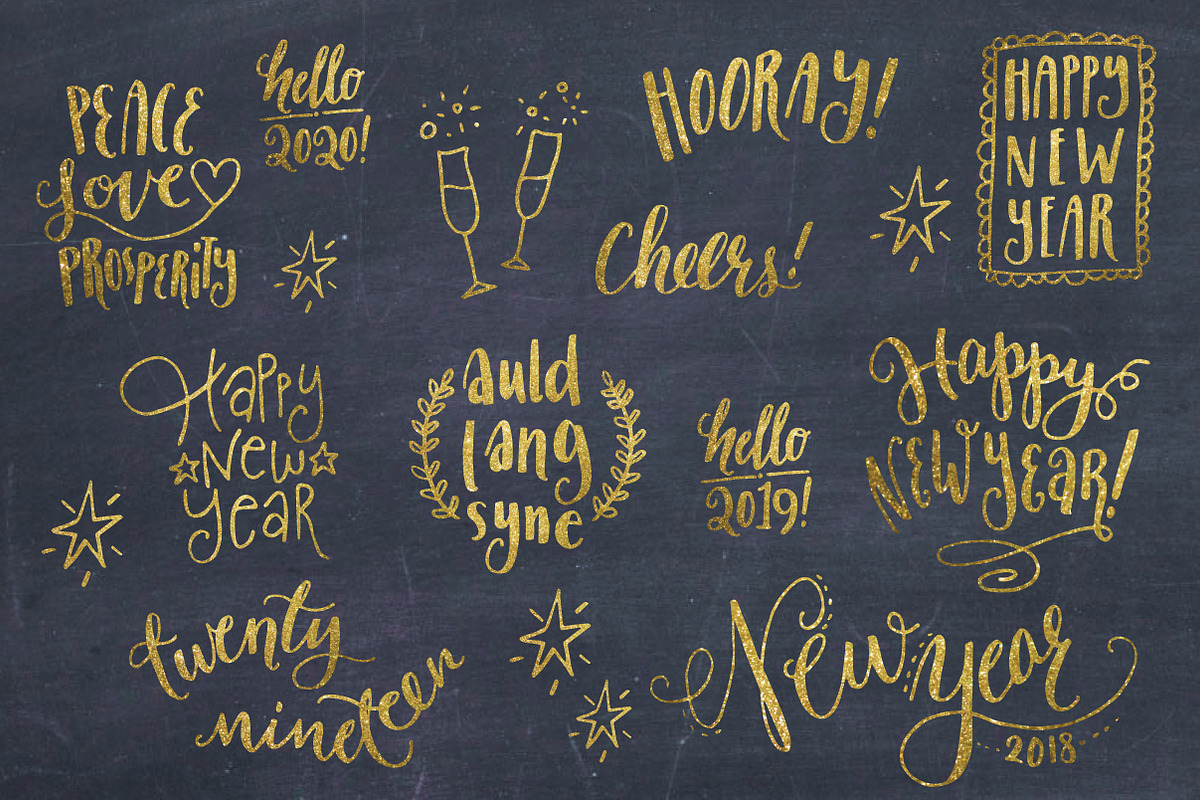 PEACE
love
PROSPERITY
hello
2020!
HOORAY!
Cheers!
HAPPY
NEW
YEAR
Happy
New
year
auld
lang
syne
hello
2019!
Happy
NEW YEAR!
twenty
nineteen
New year
2018